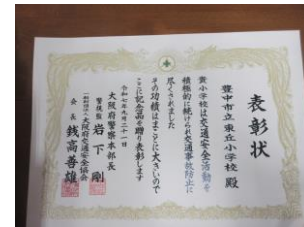 表彰状
豊中市立東丘小学校 殿
貴小学校は交通安全活動を
積極的に続けられ交通事故防止に
尽くされました
その功績はまことに大きいので
ここに記念品を贈り表彰します
令和七年九月二十一日
大阪府警察本部長
警視監 岩下 剛
一般財団法人大阪府交通安全協会
会長 銭高善雄